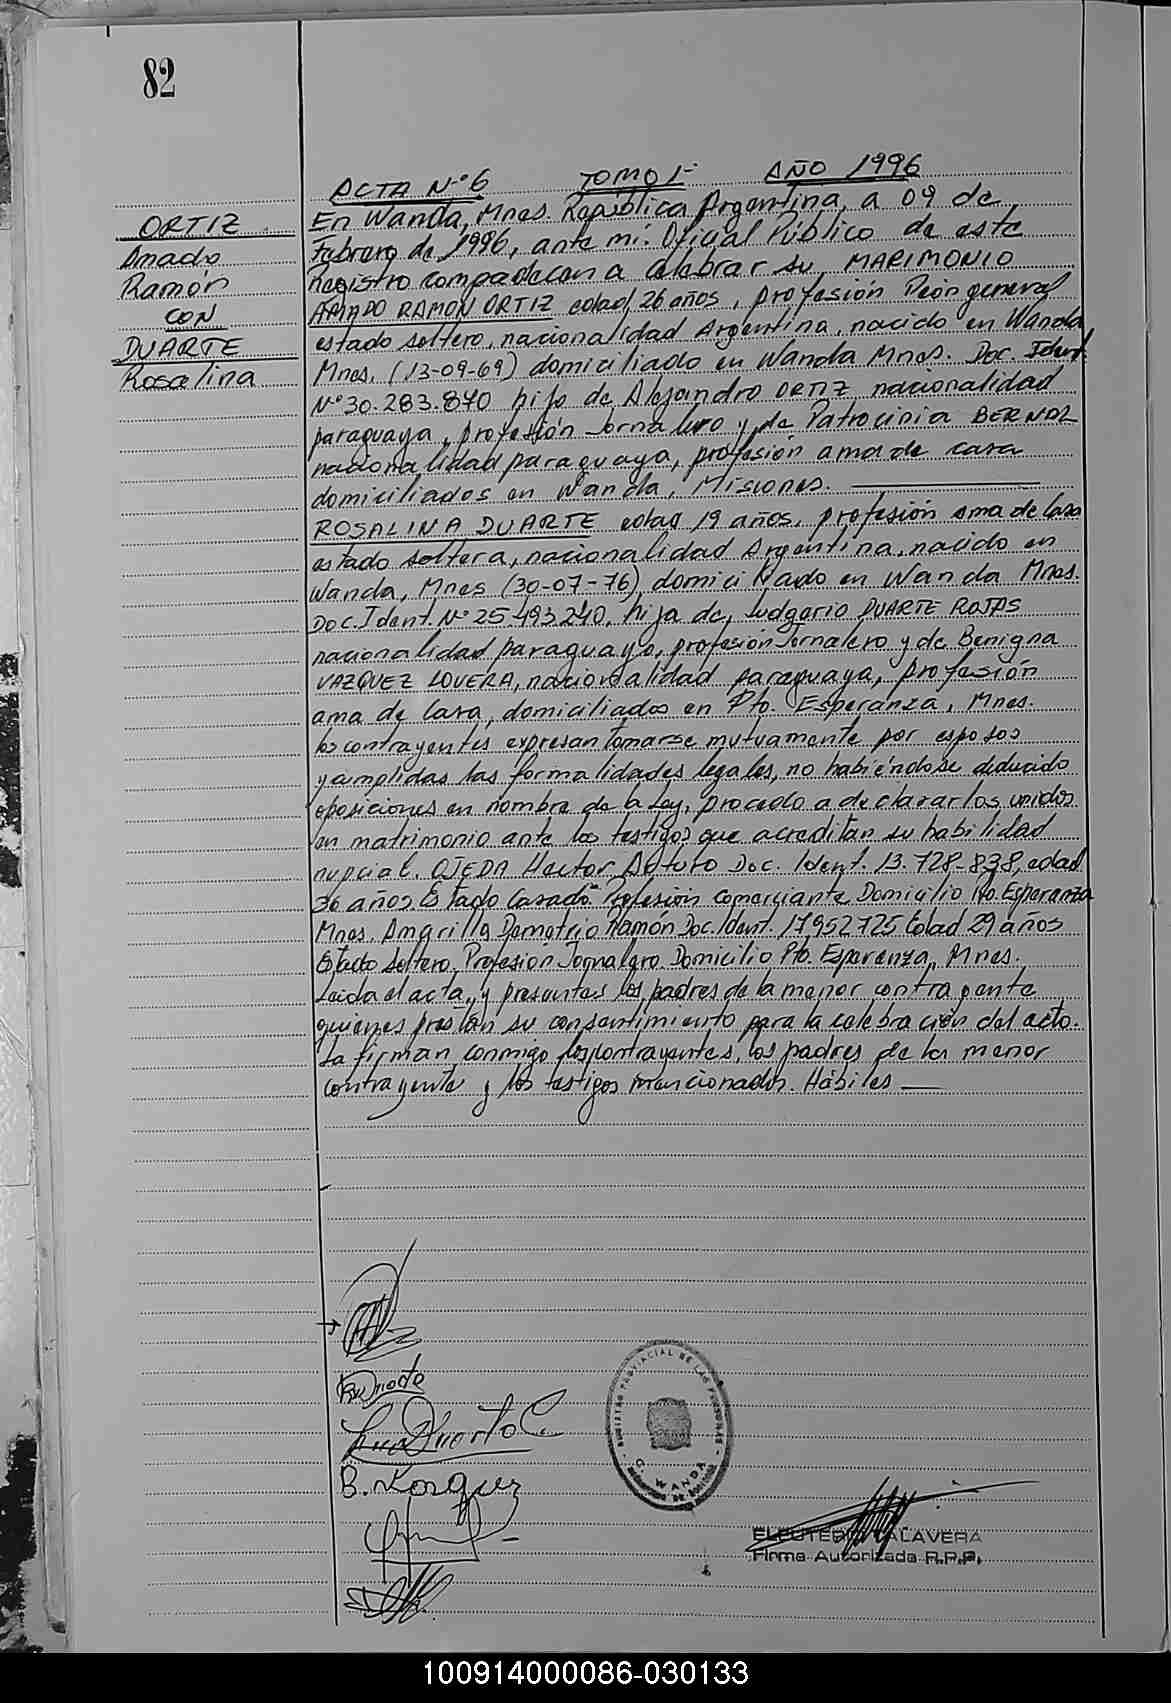 82
ACTA Nº 6 TOMO 1º AÑO 1996
ORTIZ
Amado
Ramón
CON
DUARTE
Rosalina
En Wanda, Mnes. República Argentina, a 09 de
Febrero de 1996, ante mí: Oficial Público de este
Registro compadecen a celebrar su MARIMONIO
AMADO RAMON ORTIZ edad, 26 años, profesión Peón general
estado soltero, nacionalidad Argentina, nacido en Wanda
Mnes. (13-09-69) domiciliado en Wanda Mnes. Doc. Ident.
Nº 30.283.870 hijo de Alejandro ORTIZ nacionalidad
paraguaya, profesión Jornalero y de Patrocinia BERNAL
nacionalidad paraguaya, profesión ama de casa
domiciliados en Wanda, Misiones.
ROSALINA DUARTE edad 19 años, profesión ama de casa
estado soltera, nacionalidad Argentina, nacido en
Wanda, Mnes (30-07-76), domiciliado en Wanda Mnes.
Doc. Ident. Nº 25.493.240, hija de, Ludgerio DUARTE ROJAS
nacionalidad paraguaya, profesión Jornalero y de Benigna
VAZQUEZ LOVERA, nacionalidad paraguaya, profesión
ama de casa, domiciliados en Pto. Esperanza, Mnes.
los contrayentes expresan tomarse mutuamente por esposos
y cumplidas las formalidades legales, no habiéndose deducido
oposiciones en nombre de la Ley, procedo a declararlos unidos
en matrimonio ante los testigos que acreditan su habilidad
nupcial. OJEDA Hector Arturo Doc. Ident. 13.728-838, edad
36 años. Estado Casado. Profesión Comerciante Domicilio Pto. Esperanza
Mnes. Amarilla Demetrio Ramón Doc. Ident. 17952725 Edad 29 años
Estado Soltero, Profesión Jornalero. Domicilio Pto. Esperanza, Mnes.
Leida el acta, y presentes los padres de la menor contrayente
quienes prestan su consentimiento para la celebración del acto.
La firman conmigo los contrayentes, los padres de la menor
contrayente y los testigos mencionados. Hábiles
Duarte C.
B. Vasquez
REGISTRO PROVINCIAL DE LAS PERSONAS
WANDA
ELEUTERIO TALAVERA
Firma Autorizada R.P.P.
100914000086-030133